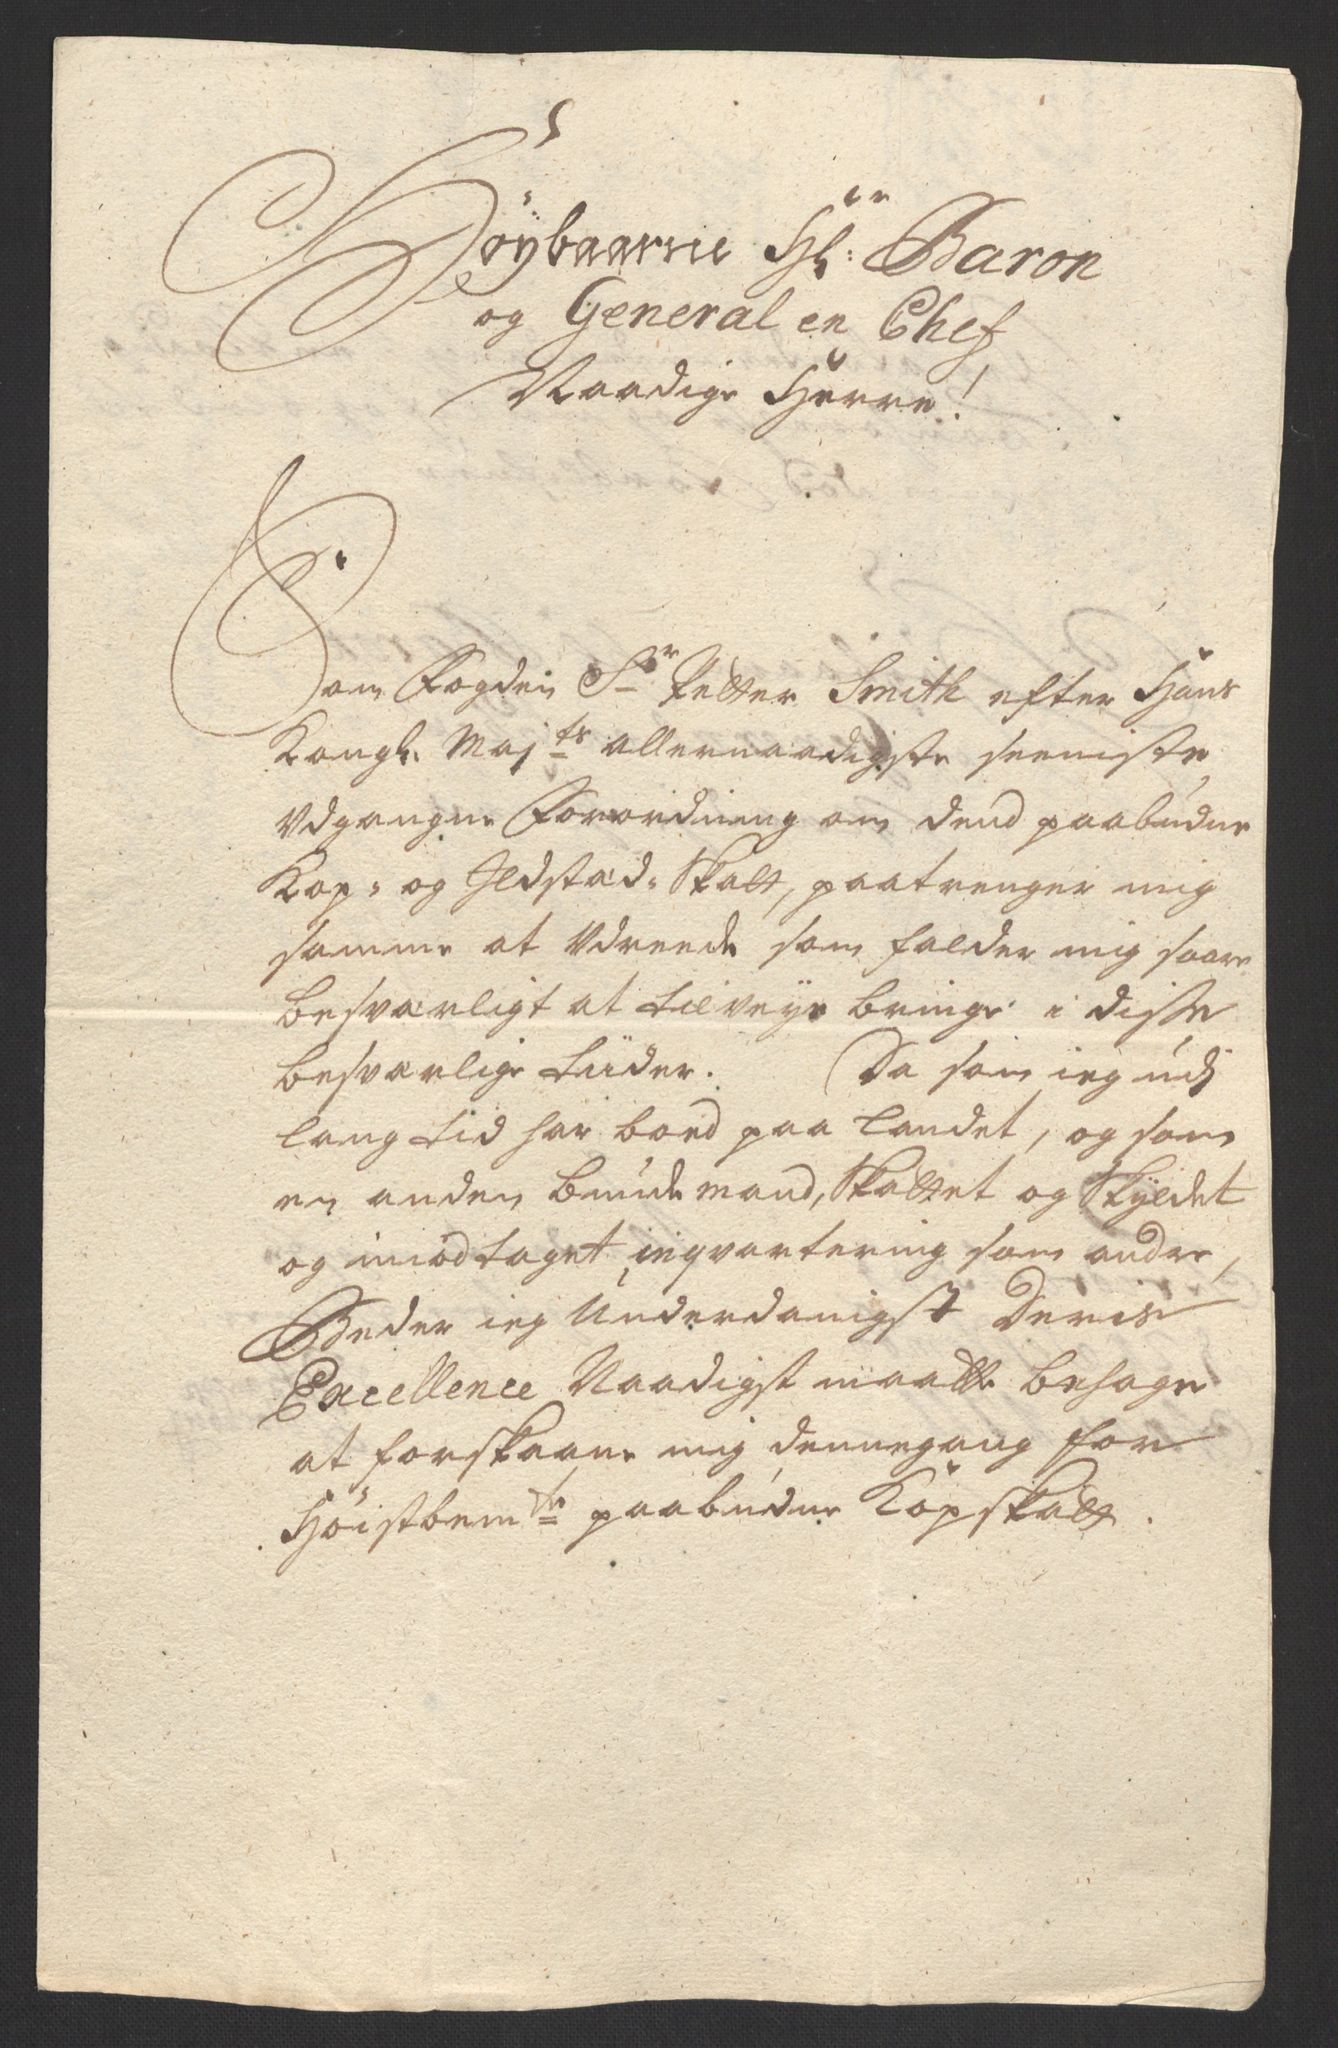 Höybaarne Hl: Baron
og General en Chef
Naadige Herre!
Som Fogden Sr Petter Smith efter Hans
Kongl. Majts allernaadigste seeniste
Vdgangne Forordning om dend paabudne
Kop- og Ildstad-Skatt, paatrenger mig
samme at Vdreede som falder mig saare
besværligt at tilveye bringe i disse
besværlige tiider. Da som ieg udj
lang tid har boed paa Landet, og som
en anden bunde mand, Skattet og Skyldet
og imodtaget inqvartering som andre,
Beder ieg Underdanigst Deris
Excellence Naadigst maatte behage
at forskaane mig dennegang for
Höistbemte paabudne Kopskatt.